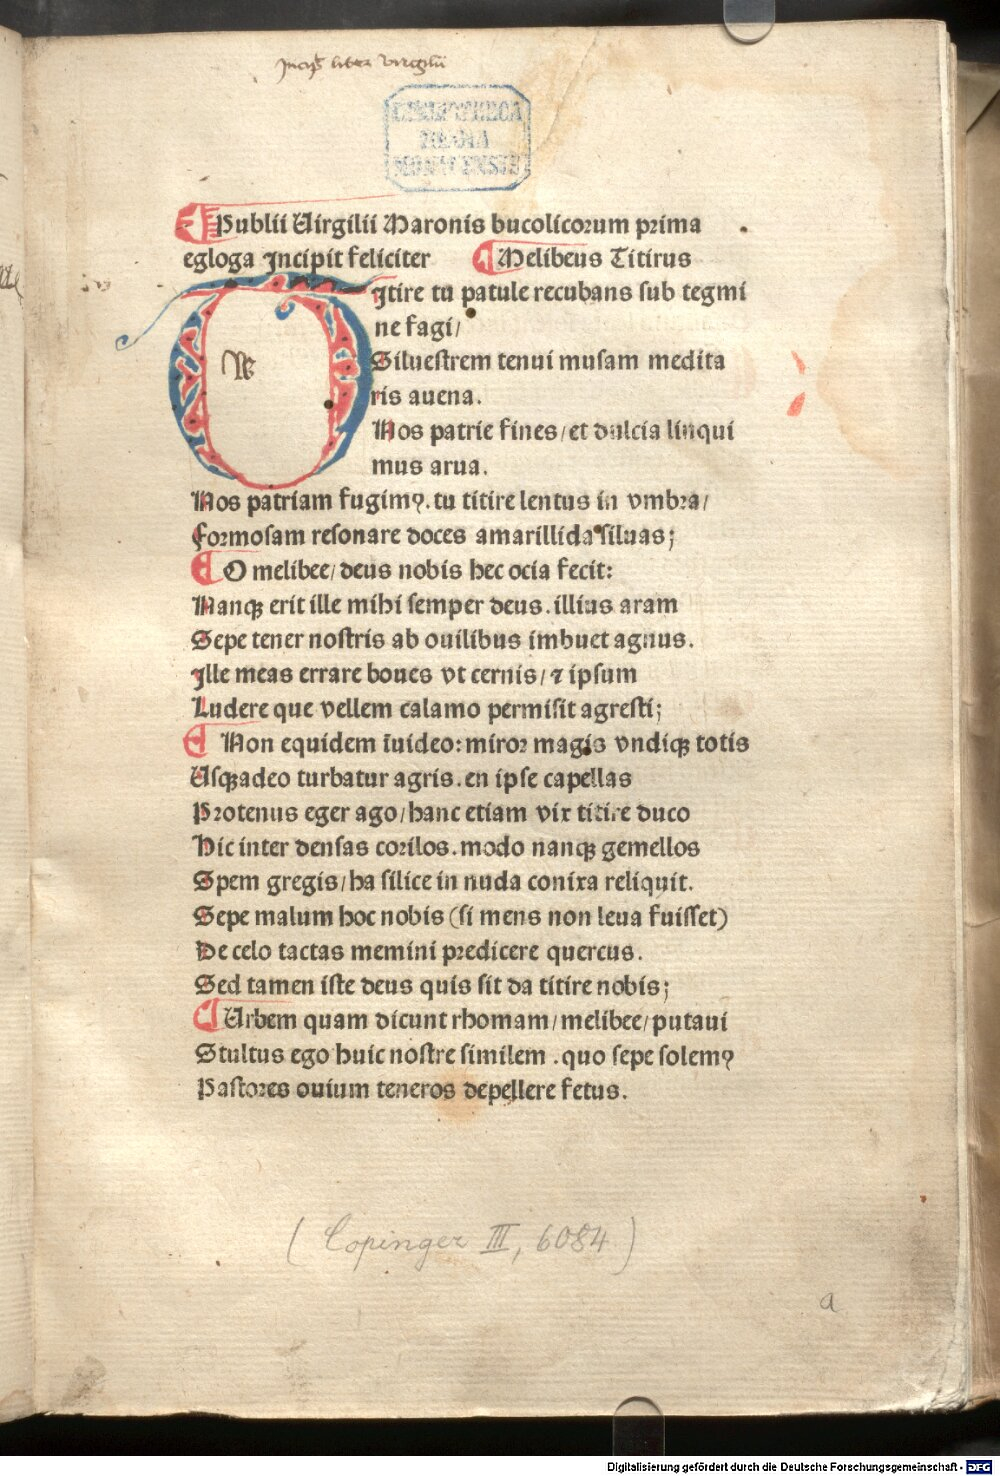 Incipit liber virgilii
BIBLIOTHECA
REGIA
MONACENSIS
Publii Uirgilii Maronis bucolicorum prima
egloga Incipit feliciter Melibeus Titirus
TItire tu patule recubans sub tegmi
ne fagi/
Siluestrem tenui musam medita
ris auena.
Nos patrie fines/et dulcia linqui
mus arua.
Nos patriam fugimꝰ.tu titire lentus in vmbra/
Formosam resonare doces amarillida siluas;
O melibee/deus nobis hec ocia fecit:
Nanqꝫ erit ille mihi semper deus.illius aram
Sepe tener nostris ab ouilibus imbuet agnus.
Ille meas errare boues vt cernis/⁊ ipsum
Ludere que vellem calamo permisit agresti;
Non equidem īuideo:miror magis vndiqꝫ totis
Usqꝫadeo turbatur agris.en ipse capellas
Protenus eger ago/hanc etiam vix titire duco
Hic inter densas corilos.modo nanqꝫ gemellos
Spem gregis/ha silice in nuda conixa reliquit.
Sepe malum hoc nobis (si mens non leua fuisset)
De celo tactas memini predicere quercus.
Sed tamen iste deus quis sit da titire nobis;
Urbem quam dicunt rhomam/melibee/putaui
Stultus ego huic nostre similem .quo sepe solemꝰ
Pastores ouium teneros depellere fetus.
(Copinger III, 6084)
a
Digitalisierung gefördert durch die Deutsche Forschungsgemeinschaft - DFG